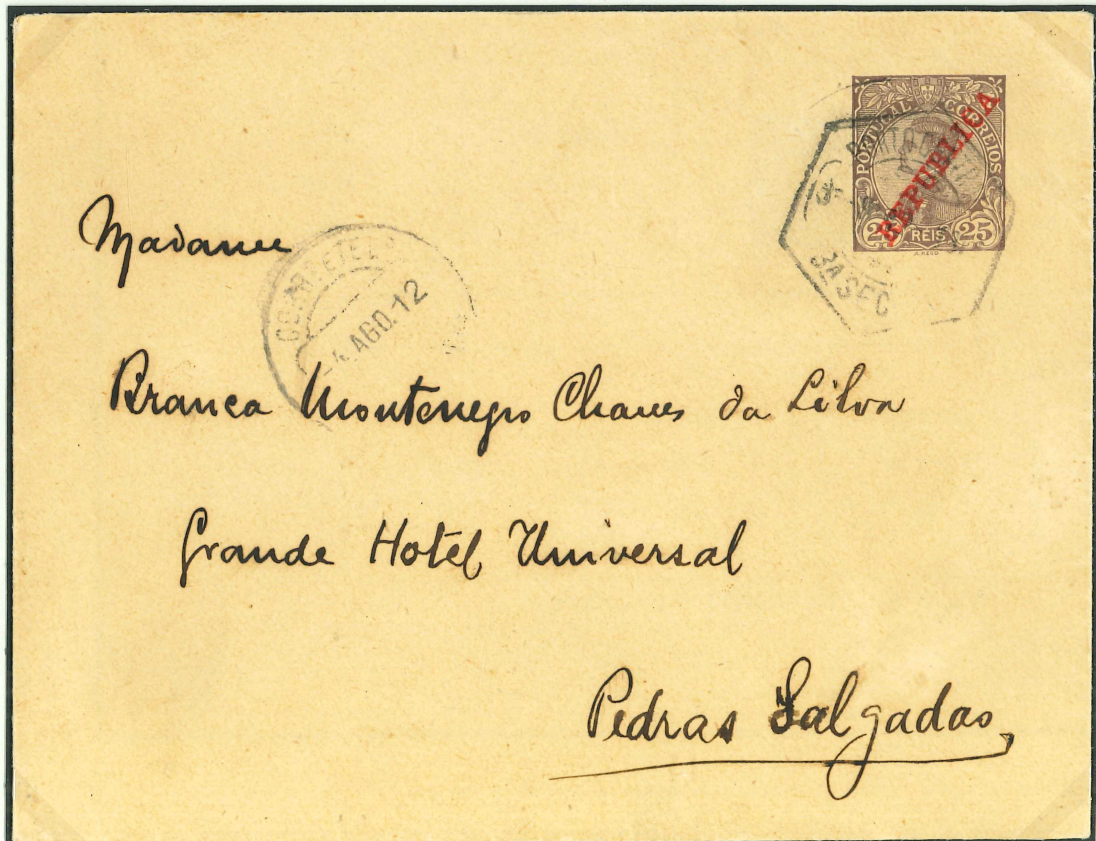 PORTUGAL CORREIOS
REPUBLICA
25 REIS 25
3ASEC
Madame
CORR E TEL
4 AGO. 12
Branca Montenegro Chaves da Silva
Grande Hotel Universal
Pedras Salgadas